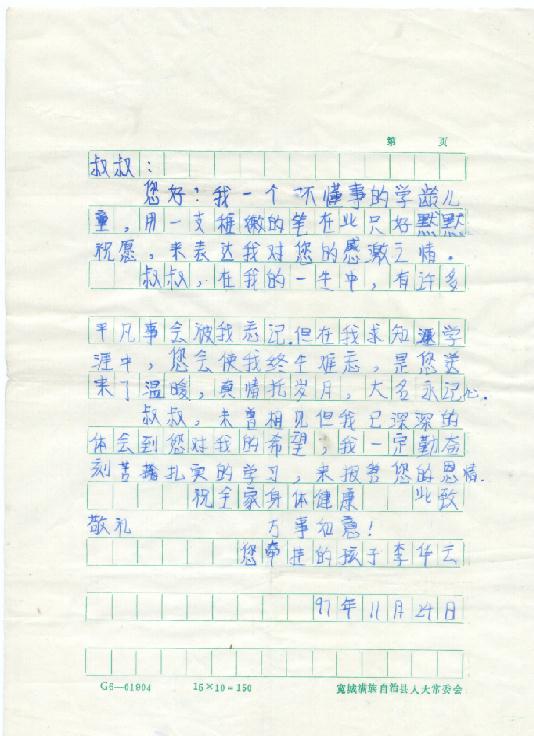 第 页
叔叔：
您好！我一个不懂事的学龄儿
童，用一支稚嫩的笔在此只好默默
祝愿，来表达我对您的感激之情。
叔叔，在我的一生中，有许多
平凡事会被我忘记.但在我求知涯学
涯中，您会使我终生难忘，是您送
来了温暖，真情托岁月，大名永记心.
叔叔，未曾相见但我已深深的
体会到您对我的希望；我一定勤奋
刻苦扎实的学习，来报答您的恩情.
祝全家身体健康 此致
敬礼 万事如意！
您牵挂的孩子李华云
97年11月24日
G6—01904 15×10＝150 宽城满族自治县人大常委会